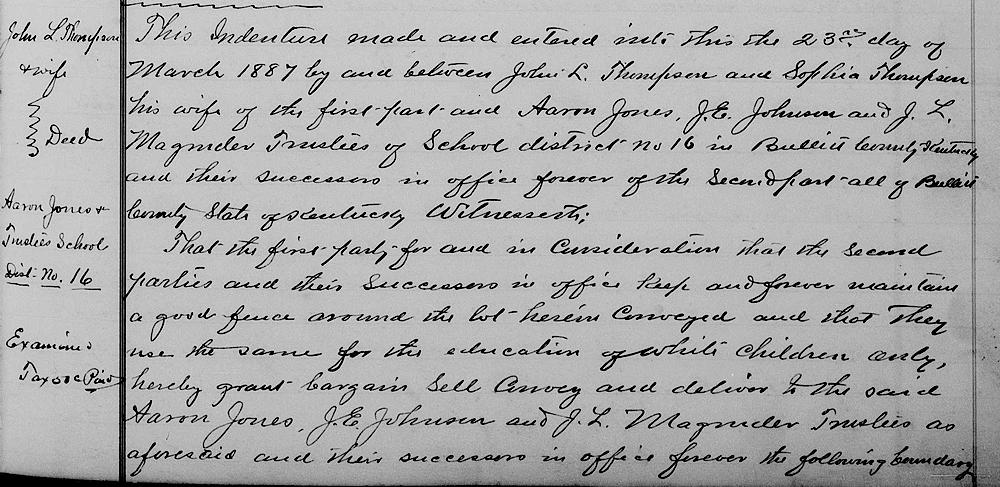 John L. Thompson
& wife
Deed
Aaron Jones &
Trustees School
Dist. No. 16
Examined
Tax 50c Paid
This Indenture made and entered into this the 23rd day of
March 1887 by and between John L. Thompson and Sophia Thompson
his wife of the first part and Aaron Jones, J.E. Johnson and J. L.
Magruder Trustees of School district No 16 in Bullitt County Kentucky
and their successors in office forever of the Second part all of Bullitt
County State of Kentucky Witnesseth;
That the first party for and in Consideration that the second
parties and their Successors in office keep and forever maintain
a good fence around the lot herein Conveyed and that they
use the same for the education of white children only,
hereby grant bargain Sell Convey and deliver to the said
Aaron Jones, J.E. Johnson and J. L. Magruder Trustees as
aforesaid and their successors in office forever the following boundary